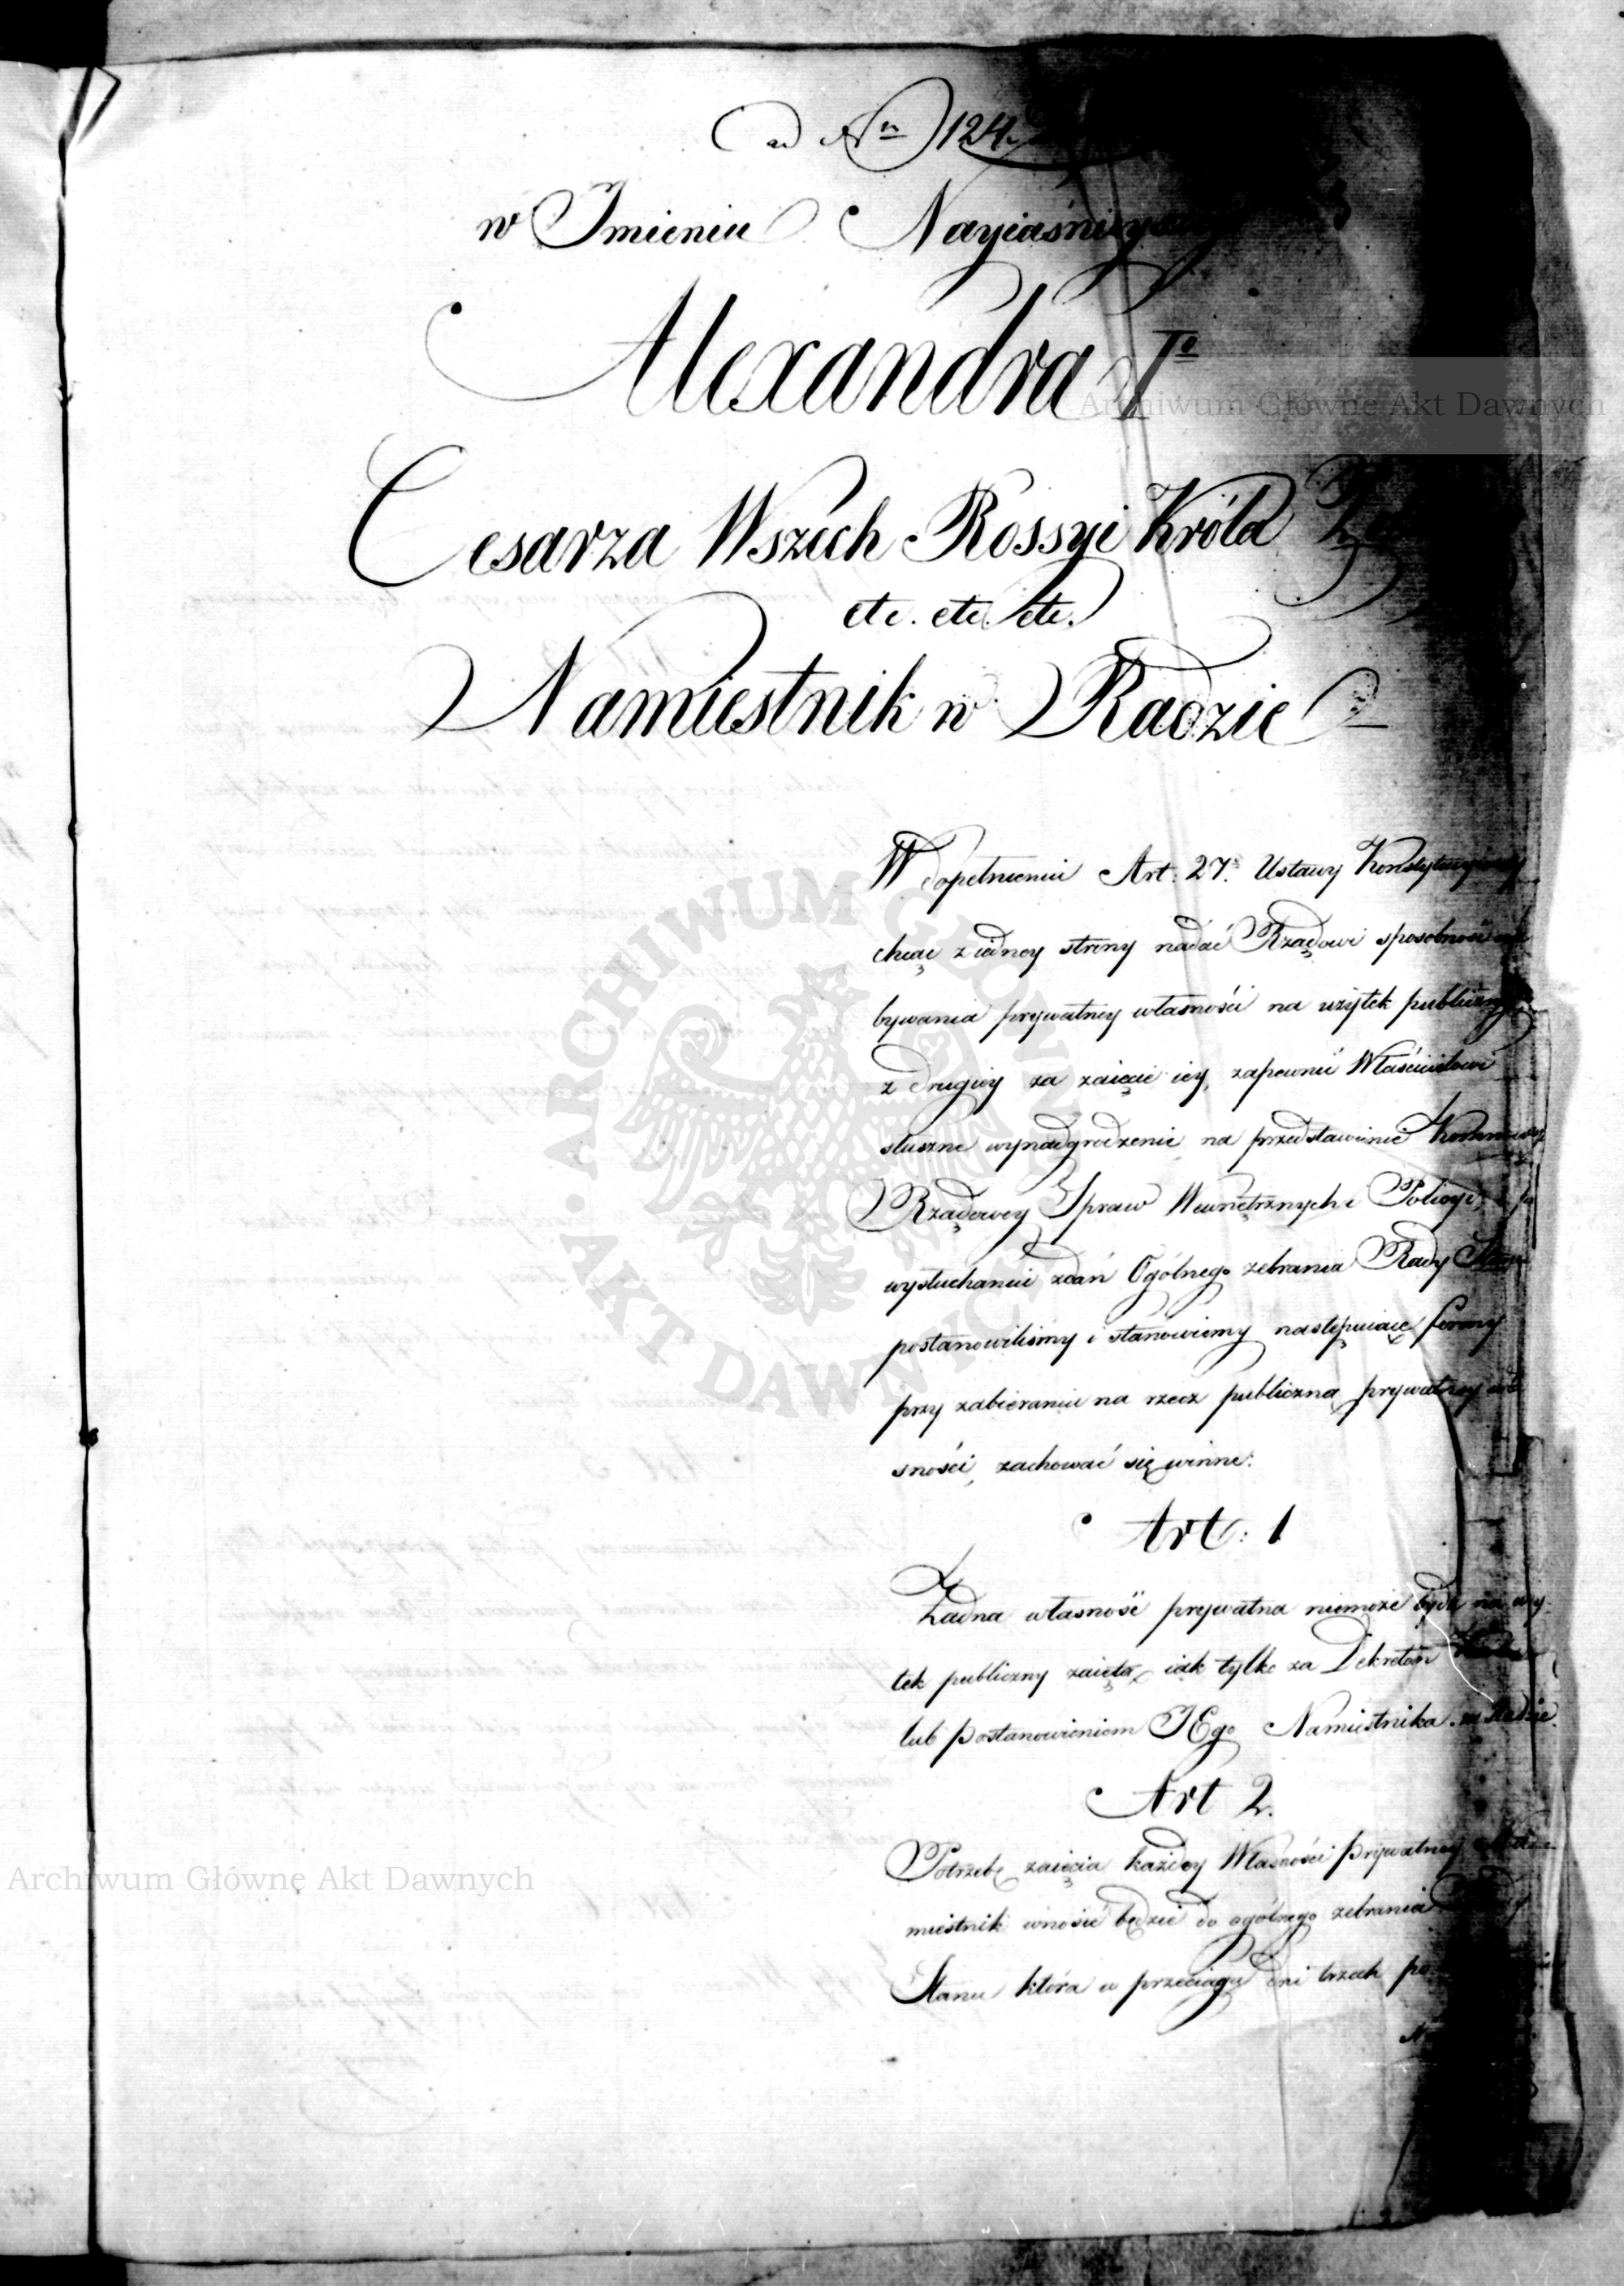 ad Nr 124.
w Imieniu Nayiaśnieyszego
Alexandra Igo
Cesarza Wszech Rossyi Króla
etc. etc. etc.
Namiestnik w Radzie
W dopełnieniu Art: 27. Ustawy Konstytucyiney
chcąc z iedney strony nadać Rządowi sposobność na-
bywania prywatney własności na użytek publiczny
z drugiey za zaięcie iey, zapewnić Właścicielowi
słuszne wynadgrodzenie, na przedstawienie Kommissyi
Rządowey Spraw Wewnętrznych i Policyi, i po
wysłuchaniu zdań Ogólnego zebrania Rady Stanu
postanowiliśmy i stanowiemy następuiące formy
przy zabieraniu na rzecz publiczną prywatney wła-
sności, zachować się winne.
Art: 1
Żadna własność prywatna niemoże bydź na uży-
tek publiczny zaięta, iak tylko za Dekretem
lub postanowieniem JEgo Namiestnika w Radzie.
Art 2.
Potrzebę zaięcia każdey Własności prywatney
miestnik wnosić będzie do ogólnego zebrania
Stanu która w przeciągu dni trzech
Archiwum Główne Akt Dawnych
Archiwum Główne Akt Dawnych
ARCHIWUM GŁÓWNE AKT DAWNYCH